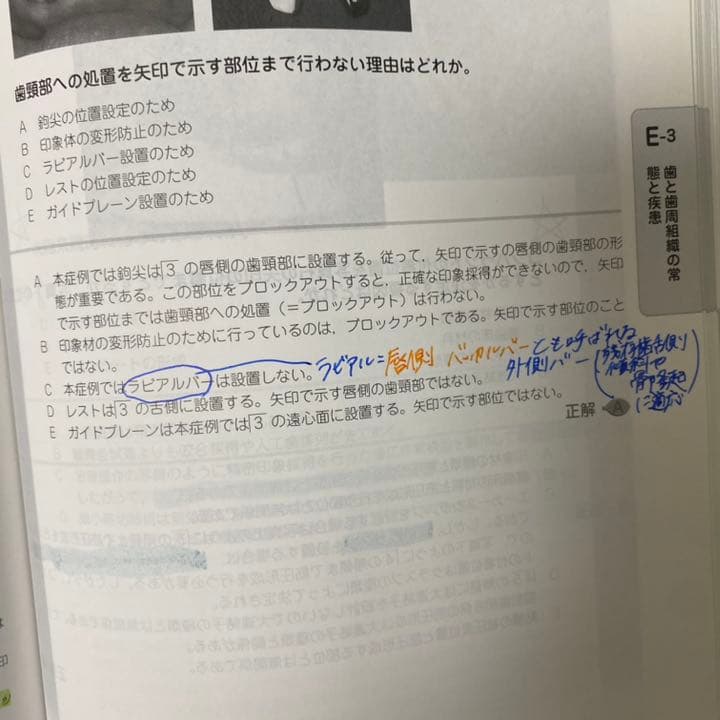 歯頸部への処置を矢印で示す部位まで行わない理由はどれか。
A 鉤尖の位置設定のため
B 印象体の変形防止のため
C ラビアルバー設置のため
D レストの位置設定のため
E ガイドプレーン設置のため
E-3
歯と歯周組織の常
態と疾患
A 本症例では鉤尖は3の唇側の歯頸部に設置する。従って、矢印で示すの唇側の歯頸部の形
態が重要である。この部位をブロックアウトすると、正確な印象採得ができないので、矢印
で示す部位までは歯頸部への処置（＝ブロックアウト）は行わない。
B 印象材の変形防止のために行っているのは、ブロックアウトである。矢印で示す部位のこと
ではない。
C 本症例ではラビアルバーは設置しない。
ラビアル=唇側 バッカルバーとも呼ばれる
外側バー
残存歯舌側
傾斜や
に適応
D レストは3の舌側に設置する。矢印で示す唇側の歯頸部ではない。
E ガイドプレーンは本症例では3の遠心面に設置する。矢印で示す部位ではない。
正解 A
印